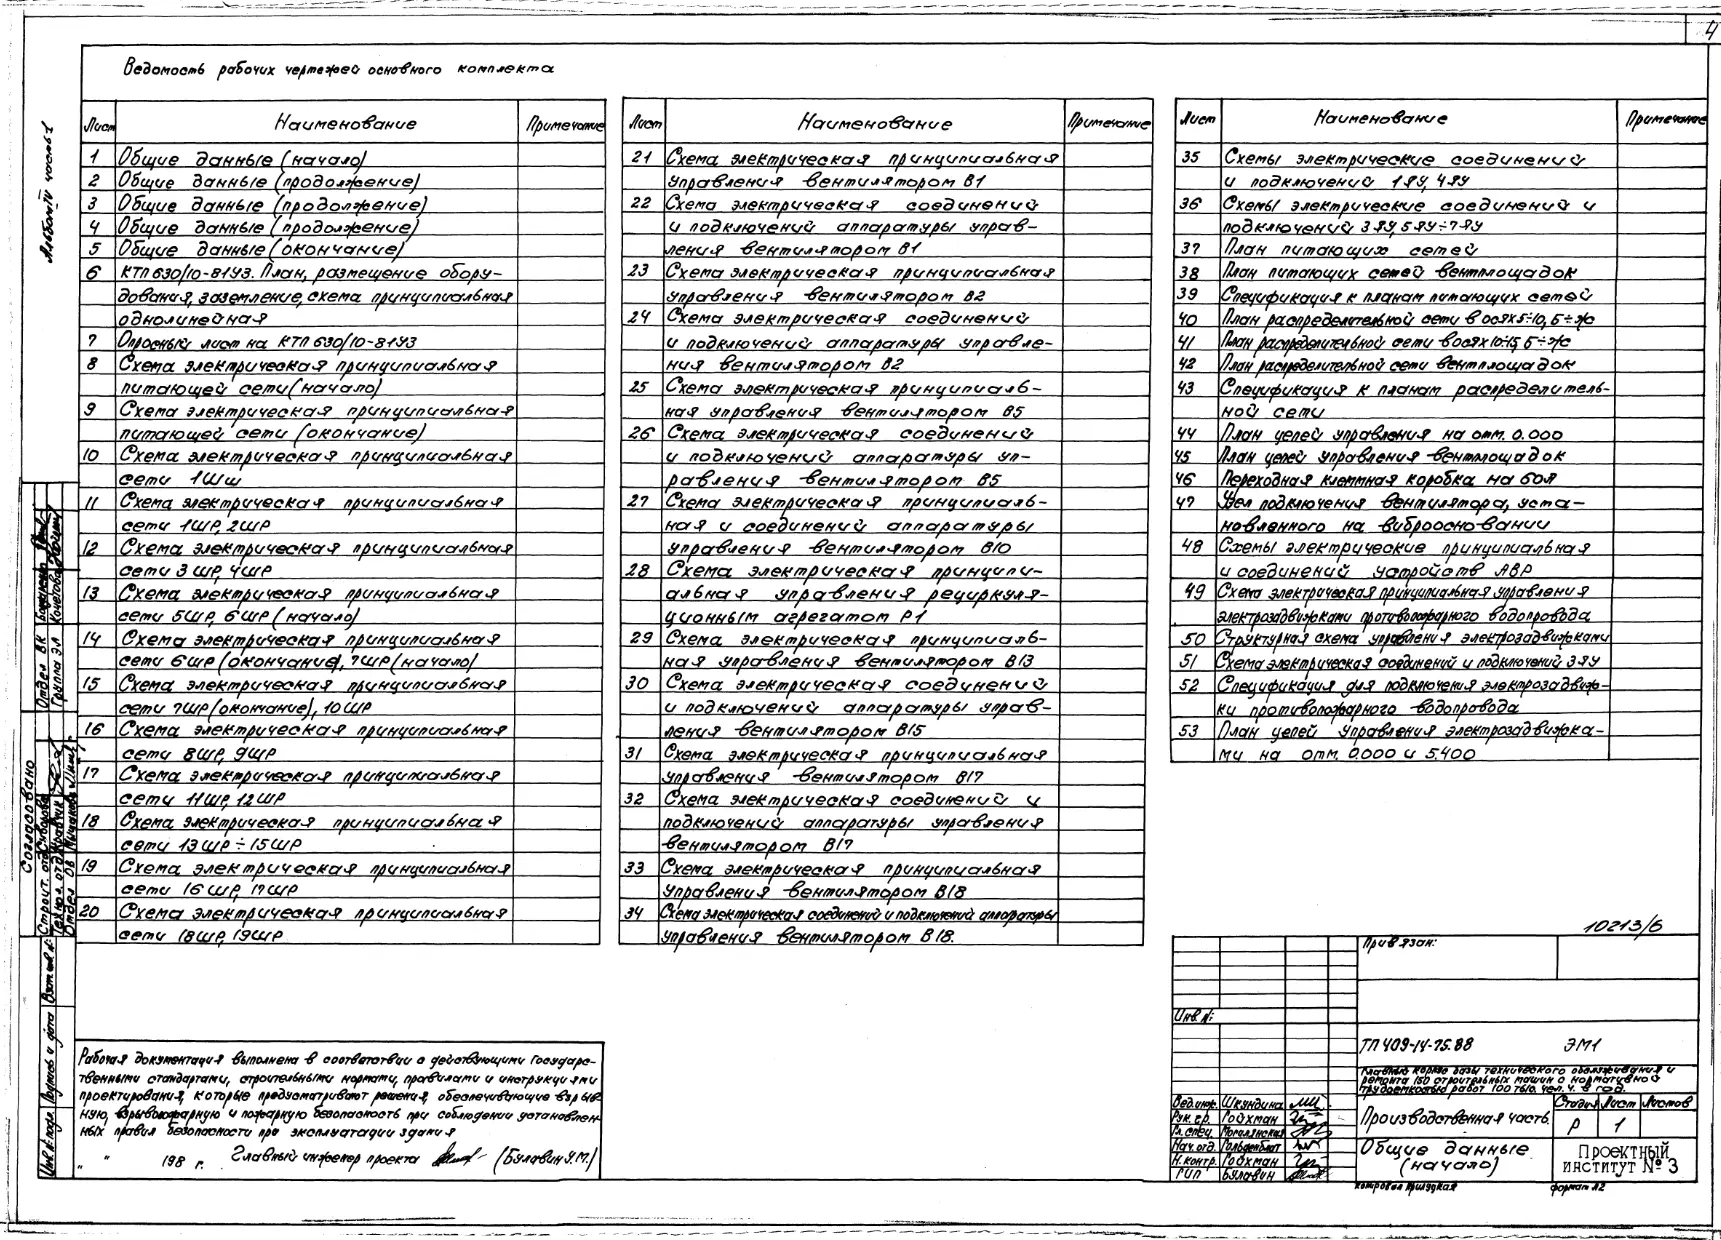 4
Альбом IV часть 1
Ведомость рабочих чертежей основного комплекта
Лист Наименование Примечание
1 Общие данные (начало)
2 Общие данные (продолжение)
3 Общие данные (продолжение)
4 Общие данные (продолжение)
5 Общие данные (окончание)
6 КТП 630/10-81У3. План, размещение обору-
дования, заземление, схема принципиальная
однолинейная
7 Опросный лист на КТП 630/10-81У3
8 Схема электрическая принципиальная
питающей сети (начало)
9 Схема электрическая принципиальная
питающей сети (окончание)
10 Схема электрическая принципиальная
сети 1Шш
11 Схема электрическая принципиальная
сети 1ШР, 2ШР
12 Схема электрическая принципиальная
сети 3ШР, 4ШР
13 Схема электрическая принципиальная
сети 5ШР, 6ШР (начало)
14 Схема электрическая принципиальная
сети 6ШР (окончание), 7ШР (начало)
15 Схема электрическая принципиальная
сети 7ШР (окончание), 10ШР
16 Схема электрическая принципиальная
сети 8ШР, 9ШР
17 Схема электрическая принципиальная
сети 11ШР, 12ШР
18 Схема электрическая принципиальная
сети 13ШР÷15ШР
19 Схема электрическая принципиальная
сети 16ШР, 17ШР
20 Схема электрическая принципиальная
сети 18ШР, 19ШР
Лист Наименование Примечание
21 Схема электрическая принципиальная
управления вентилятором В1
22 Схема электрическая соединений
и подключений аппаратуры управ-
ления вентилятором В1
23 Схема электрическая принципиальная
управления вентилятором В2
24 Схема электрическая соединений
и подключений аппаратуры управле-
ния вентилятором В2
25 Схема электрическая принципиаль-
ная управления вентилятором В5
26 Схема электрическая соединений
и подключений аппаратуры уп-
равления вентилятором В5
27 Схема электрическая принципиаль-
ная и соединений аппаратуры
управления вентилятором В10
28 Схема электрическая принципи-
альная управления рециркуля-
ционным агрегатом Р1
29 Схема электрическая принципиаль-
ная управления вентилятором В13
30 Схема электрическая соединений
и подключений аппаратуры управ-
ления вентилятором В15
31 Схема электрическая принципиальная
управления вентилятором В17
32 Схема электрическая соединений и
подключений аппаратуры управления
вентилятором В17
33 Схема электрическая принципиальная
управления вентилятором В18
34 Схема электрическая соединений и подключений аппаратуры
управления вентилятором В18.
Лист Наименование Примечание
35 Схемы электрические соединений
и подключений 1ЯУ, 4ЯУ
36 Схемы электрические соединений и
подключений 3ЯУ, 5ЯУ÷7ЯУ
37 План питающих сетей
38 План питающих сетей вентплощадок
39 Спецификация к планам питающих сетей
40 План распределительной сети в осях 5÷10, Б÷Ж
41 План распределительной сети в осях 10÷15, Б÷Ж
42 План распределительной сети вентплощадок
43 Спецификация к планам распределитель-
ной сети
44 План цепей управления на отм. 0.000
45 План цепей управления вентплощадок
46 Переходная клеммная коробка на 60л
47 Узел подключения вентилятора, уста-
новленного на виброосновании
48 Схемы электрические принципиальная
и соединений устройств АВР
49 Схема электрическая принципиальная управления
электрозадвижками противопожарного водопровода
50 Структурная схема управления электрозадвижками
51 Схема электрическая соединений и подключений 3ЯУ
52 Спецификация для подключения электрозадвиж-
ки противопожарного водопровода
53 План цепей управления электрозадвижка-
ми на отм. 0.000 и 5.400
Согласовано
Отдел ВК
Группа ЭЛ
Отдел ОВ
Взам. инв. №
Подпись и дата
Инв. № подл.
Рабочая документация выполнена в соответствии с действующими Государс-
твенными стандартами, строительными нормами, правилами и инструкциями
проектирования, которые предусматривают решения, обеспечивающие взрыв-
ную, взрывопожарную и пожарную безопасность при соблюдении установлен-
ных правил безопасности при эксплуатации здания
" " 198 г. Главный инженер проекта (Булавин У.М.)
10213/6
Привязан:
Инв. №:
ТП 409-14-75.88 ЭМ1
Главный корпус базы технического обслуживания и
ремонта 150 строительных машин с нормативной
трудоемкостью работ 100 тыс. чел. ч. в год.
Вед. инж. Шкундина
Рук. гр. Гойхман
Гл. спец. Могилянская
Нач. отд. Гольденблат
Н. контр. Гойхман
ГИП Булавин
Производственная часть.
Стадия Лист Листов
Р 1
Общие данные
(начало)
Проектный
институт № 3
Копировал Прилуцкая формат А2